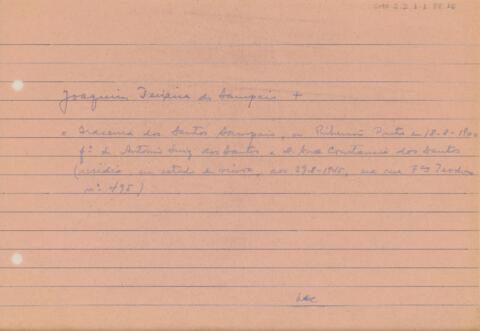 Joaquim Teixeira de Sampaio +
e Iracema dos Santos Sampaio, em Ribeirão Preto em 18-8-19
fª de Antonio Luiz dos Santos e D. Ana Constancia dos Santos
(residia, em estado de viuva, aos 29-8-1945, na rua Teodoro
nº 495)